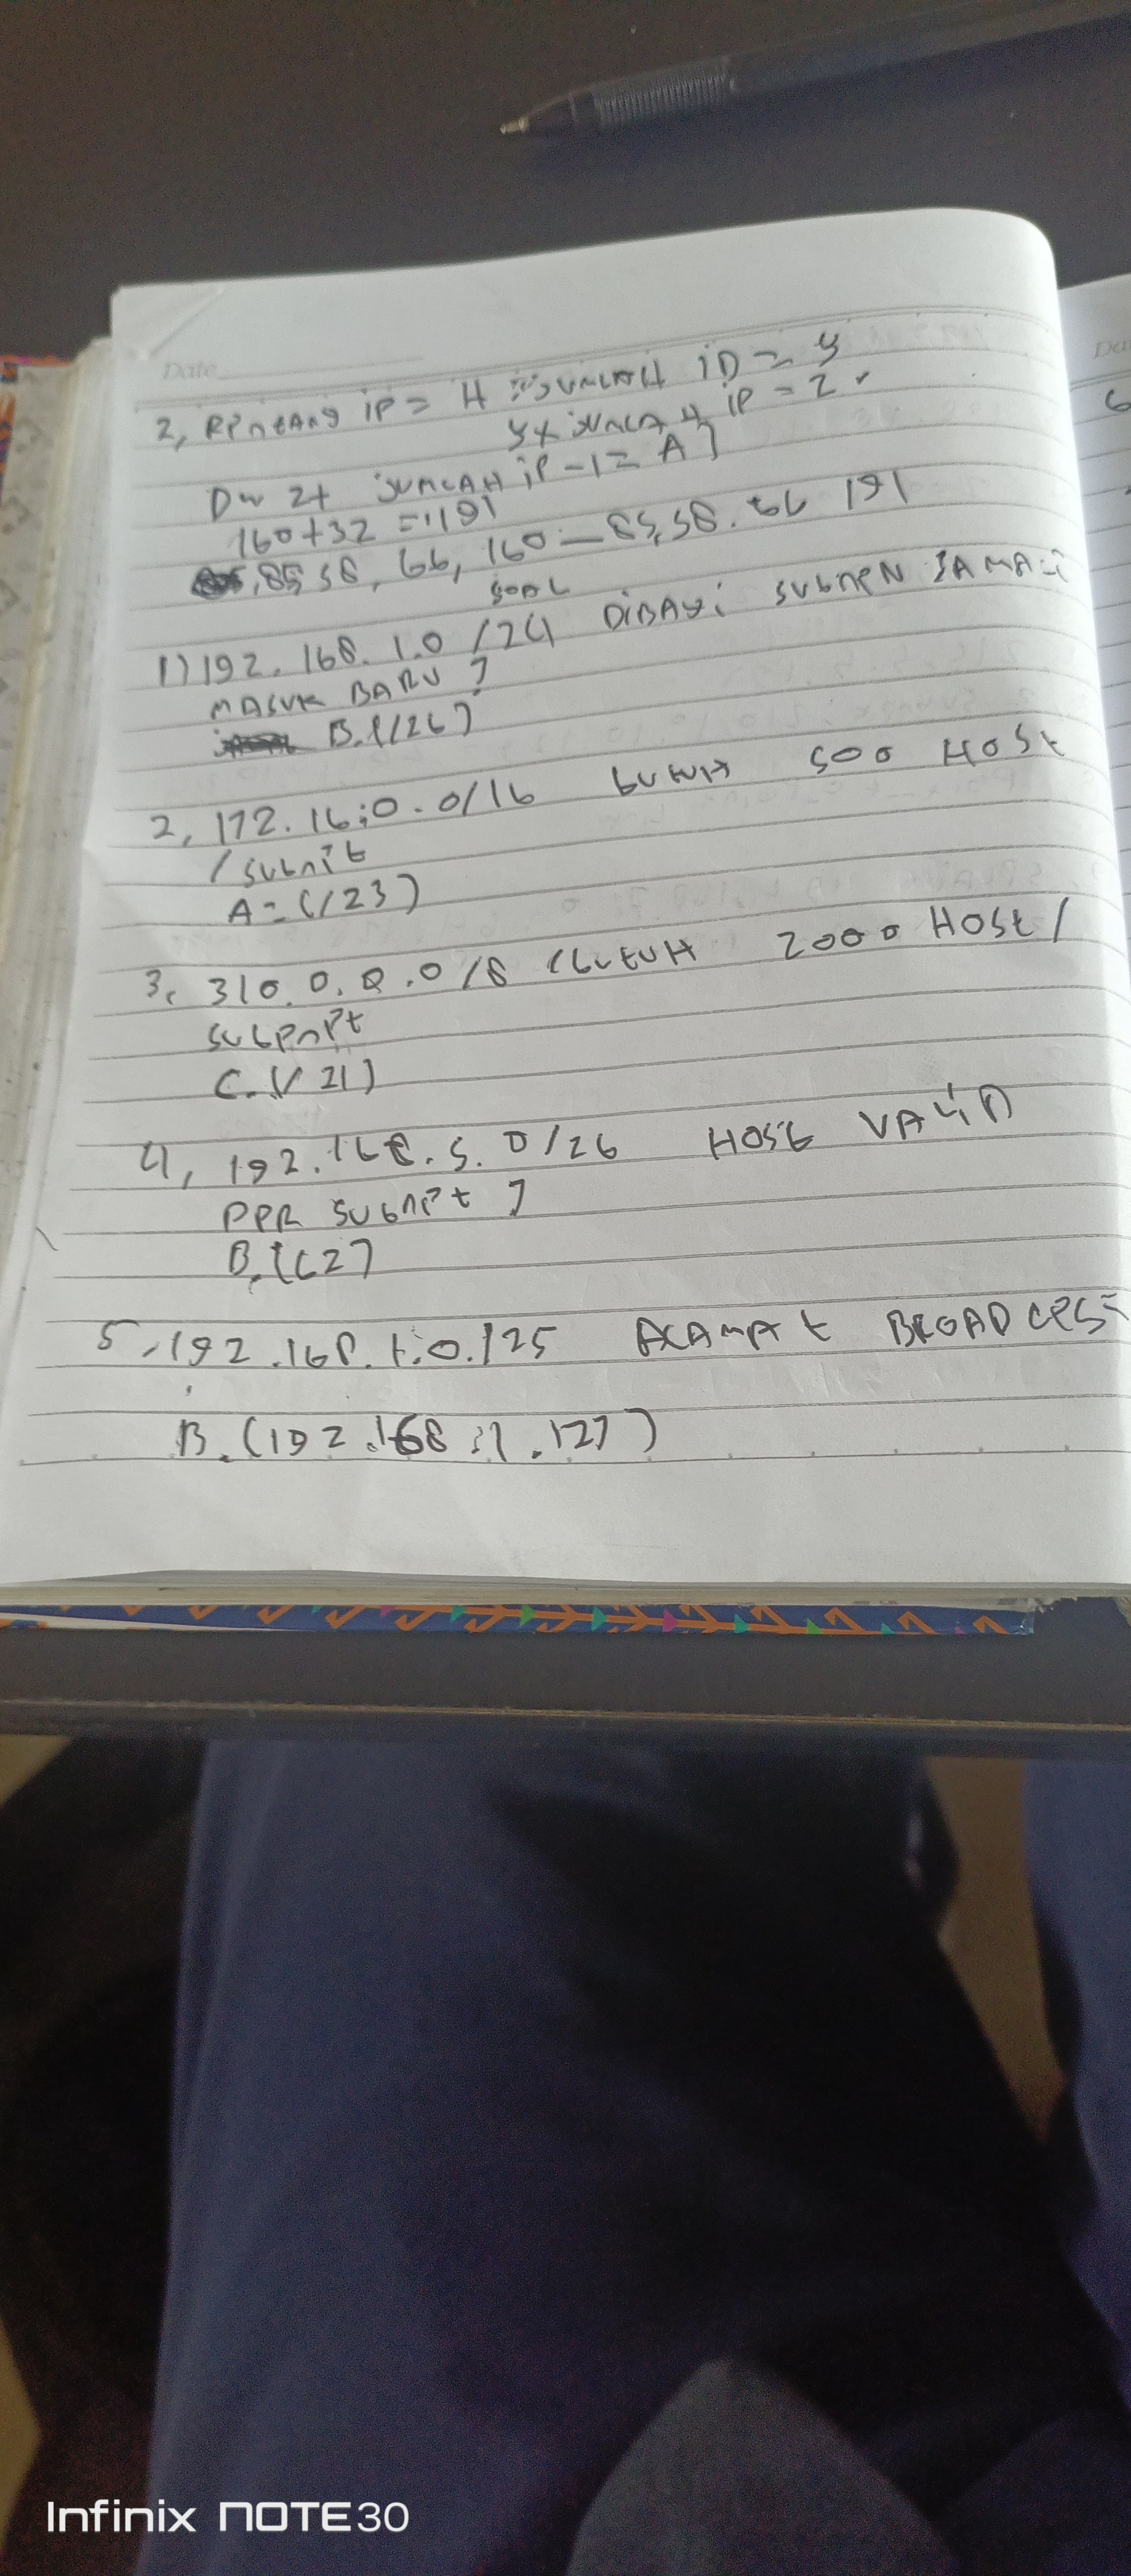 Date
2, RPntAng iP = H JUMLAH iD = 4
4x JUMLAH IP = 2
Dw 2+ JUMLAH iP - 1 = A]
160+32 = 191
85, 58, 66, 160 — 85,58. 66 191
SOAL
1) 192. 168. 1.0 /24 DiBAgi SUbnPN SAMA
MASUK BARU ?
B. (/26)
2, 172. 16.0.0/16 butuH 500 HOSt
/ Subnit
A = (/23)
3, 310. 0. 0.0/8 (butuH 2000 HOSt/
SubPnPt
C. (/ 21)
4, 192. 168. 5. 0/26 HOSt VALiD
PPR SUbnPt ?
B. (62)
5, 192.168. 1.0./25 ALAMAt BROADCPS
B. (192.168.1.127)
Infinix NOTE30